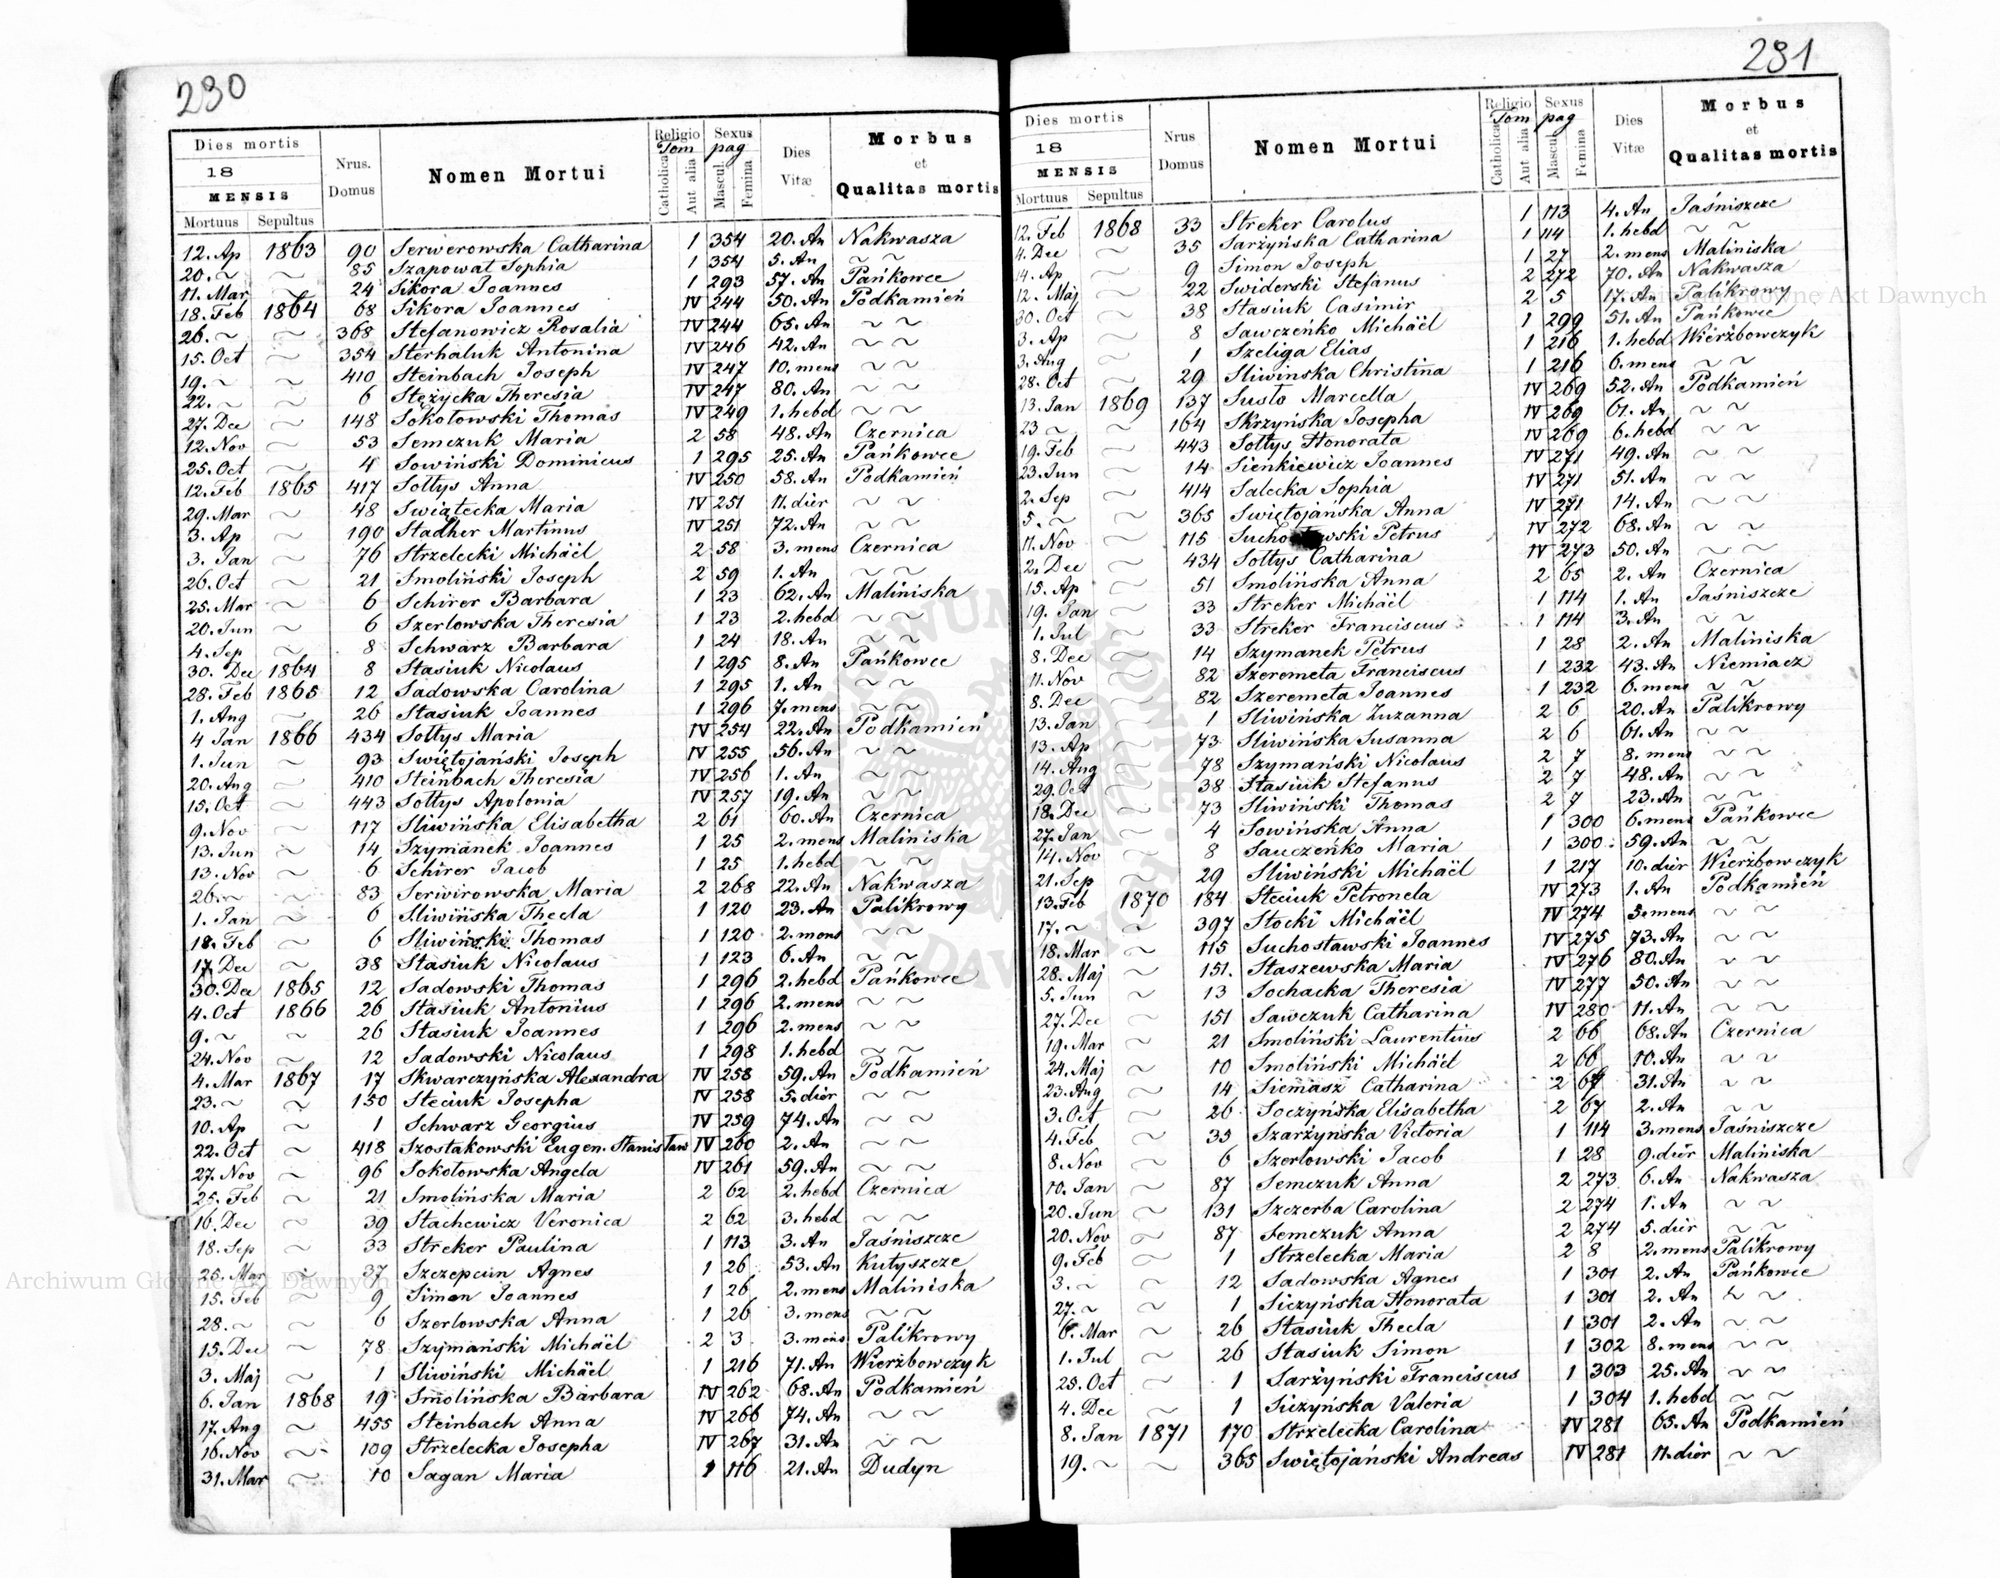 230
Dies mortis
18
MENSIS
Mortuus Sepultus
Nrus. Domus
Nomen Mortui
Religio Tom
Catholica Aut alia
Sexus pag
Mascul. Femina
Dies Vitæ
Morbus et Qualitas mortis
12. Ap 1863 90 Serwerowska Catharina 1 354 20. An Nakwasza
20. ~ ~ 85 Szapował Sophia 1 354 5. An ~ ~
11. Mar ~ 24 Sikora Joannes 1 293 57. An Pańkowce
18. Feb 1864 68 Sikora Joannes IV 244 50. An Podkamień
26. ~ ~ 368 Stefanowicz Rosalia IV 244 65. An ~ ~
15. Oct ~ 354 Sterhaluk Antonina IV 246 42. An ~ ~
19. ~ ~ 410 Steinbach Joseph IV 247 10. mens ~ ~
22. ~ ~ 6 Stężycka Theresia IV 247 80. An ~ ~
27. Dec ~ 148 Sokołowski Thomas IV 249 1. hebd ~ ~
12. Nov ~ 53 Semczuk Maria 2 58 48. An Czernica
25. Oct ~ 4 Sowiński Dominicus 1 295 25. An Pańkowce
12. Feb 1865 417 Sołtys Anna IV 250 58. An Podkamień
29. Mar ~ 48 Swiątecka Maria IV 251 11. dier ~ ~
3. Ap ~ 190 Stadher Martinus IV 251 72. An ~ ~
3. Jan ~ 76 Strzelecki Michäel 2 58 3. mens Czernica
26. Oct ~ 21 Smoliński Joseph 2 59 1. An ~ ~
25. Mar ~ 6 Schirer Barbara 1 23 62. An Maliniska
20. Jun ~ 6 Szerlowska Theresia 1 23 2. hebd ~ ~
4. Sep ~ 8 Schwarz Barbara 1 24 18. An ~ ~
30. Dec 1864 8 Stasiuk Nicolaus 1 295 8. An Pańkowce
28. Feb 1865 12 Sadowska Carolina 1 295 1. An ~ ~
1. Aug ~ 26 Stasiuk Joannes 1 296 7. mens ~ ~
4 Jan 1866 434 Sołtys Maria IV 254 22. An Podkamień
1. Jun ~ 93 Swiętojański Joseph IV 255 56. An ~ ~
20. Aug ~ 410 Steinbach Theresia IV 256 1. An ~ ~
15. Oct ~ 443 Sołtys Apolonia IV 257 19. An ~ ~
9. Nov ~ 117 Sliwińska Elisabetha 2 61 60. An Czernica
13. Jun ~ 14 Szymanek Joannes 1 25 2. mens Maliniska
13. Nov ~ 6 Schirer Jacob 1 25 1. hebd ~ ~
26. ~ ~ 83 Serwirowska Maria 2 268 22. An Nakwasza
1. Jan ~ 6 Sliwińska Thecla 1 120 23. An Palikrowy
18. Feb ~ 6 Sliwiński Thomas 1 120 2. mens ~ ~
17 Dec ~ 38 Stasiuk Nicolaus 1 123 6. An ~ ~
30. Dec 1865 12 Sadowski Thomas 1 296 2. hebd Pańkowce
4. Oct 1866 26 Stasiuk Antonius 1 296 2. mens ~ ~
9. ~ ~ 26 Stasiuk Joannes 1 296 2. mens ~ ~
24. Nov ~ 12 Sadowski Nicolaus 1 298 1. hebd ~ ~
4. Mar 1867 17 Skwarczyńska Alexandra IV 258 59. An Podkamień
23. ~ ~ 150 Steciuk Josepha IV 258 5. dier ~ ~
10. Ap ~ 1 Schwarz Georgius IV 259 74. An ~ ~
22. Oct ~ 418 Szostakowski Eugen. Stanisław IV 260 2. An ~ ~
27. Nov ~ 96 Sokołowska Angela IV 261 59. An ~ ~
25. Feb ~ 21 Smolińska Maria 2 62 2. hebd Czernica
16. Dec ~ 39 Stachewicz Veronica 2 62 3. hebd ~ ~
18. Sep ~ 33 Streker Paulina 1 113 3. An Jaśniszcze
25. Mar ~ 37 Szczepcun Agnes 1 26 53. An Kutyszcze
15. Feb ~ 9 Simon Joannes 1 26 2. mens Maliniska
28. ~ ~ 6 Szerlowska Anna 1 26 3. mens ~ ~
15. Dec ~ 78 Szymański Michäel 2 3 3. mens Palikrowy
3. Maj ~ 1 Sliwiński Michäel 1 216 71. An Wierzbowczyk
6. Jan 1868 19 Smolińska Barbara IV 262 68. An Podkamień
17. Aug ~ 455 Steinbach Anna IV 266 74. An ~ ~
16. Nov ~ 109 Strzelecka Josepha IV 267 31. An ~ ~
31. Mar ~ 10 Sagan Maria 1 116 21. An Dudyn
231
Dies mortis
18
MENSIS
Mortuus Sepultus
Nrus Domus
Nomen Mortui
Religio Tom
Catholica Aut alia
Sexus pag
Mascul. Femina
Dies Vitæ
Morbus et Qualitas mortis
12. Feb 1868 33 Streker Carolus 1 113 4. An Jaśniszcze
4. Dec ~ 35 Sarżyńska Catharina 1 114 1. hebd ~ ~
14. Ap ~ 9 Simon Joseph 1 27 2. mens Maliniska
12. Maj ~ 22 Swiderski Stefanus 2 272 70. An Nakwasza
30. Oct ~ 38 Stasiuk Casimir 2 5 17. An Palikrowy
3. Ap ~ 8 Sawczeńko Michäel 1 299 51. An Pańkowce
3. Aug ~ 1 Szeliga Elias 1 216 1. hebd Wierzbowczyk
28. Oct ~ 29 Sliwińska Christina 1 216 6. mens ~ ~
13. Jan 1869 137 Susło Marcella IV 269 52. An Podkamień
23 ~ ~ 164 Skrzyńska Josepha IV 269 61. An ~ ~
19. Feb ~ 443 Sołtys Honorata IV 269 6. hebd ~ ~
23. Jun ~ 14 Sienkiewicz Joannes IV 271 49. An ~ ~
2. Sep ~ 414 Salecka Sophia IV 271 51. An ~ ~
5. ~ ~ 365 Swiętojańska Anna IV 271 14. An ~ ~
11. Nov ~ 115 Sucho wski Petrus IV 272 68. An ~ ~
2. Dec ~ 434 Sołtys Catharina IV 273 50. An ~ ~
15. Ap ~ 51 Smolińska Anna 2 65 2. An Czernica
19. Jan ~ 33 Streker Michäel 1 114 1. An Jaśniszcze
1. Jul ~ 33 Streker Franciscus 1 114 3. An ~ ~
8. Dec ~ 14 Szymanek Petrus 1 28 2. An Maliniska
11. Nov ~ 82 Szeremeta Franciscus 1 232 43. An Niemiacz
8. Dec ~ 82 Szeremeta Joannes 1 232 6. mens ~ ~
13. Jan ~ 1 Sliwińska Zuzanna 2 6 20. An Palikrowy
13. Ap ~ 73 Sliwińska Susanna 2 6 61. An ~ ~
14. Aug ~ 78 Szymański Nicolaus 2 7 8. mens ~ ~
29. Oct ~ 38 Stasiuk Stefanus 2 7 48. An ~ ~
18. Dec ~ 73 Sliwiński Thomas 2 7 23. An ~ ~
27. Jan ~ 4 Sowińska Anna 1 300 6. mens Pańkowce
14. Nov ~ 8 Sauczeńko Maria 1 300 59. An ~ ~
21. Sep ~ 29 Sliwiński Michäel 1 217 10. dier Wierzbowczyk
13. Feb 1870 184 Steciuk Petronela IV 273 1. An Podkamień
17. ~ ~ 397 Stocki Michäel IV 274 5. mens ~ ~
18. Mar ~ 115 Suchosławski Joannes IV 275 73. An ~ ~
28. Maj ~ 151. Staszewska Maria IV 276 80. An ~ ~
5. Jun ~ 13 Sochacka Theresia IV 277 50. An ~ ~
27. Dec ~ 151 Sawczuk Catharina IV 280 11. An ~ ~
19. Mar ~ 21 Smoliński Laurentius 2 66 68. An Czernica
24. Maj ~ 10 Smoliński Michäel 2 66 10. An ~ ~
23. Aug ~ 14 Siemasz Catharina 2 67 31. An ~ ~
3. Oct ~ 26 Soczyńska Elisabetha 2 67 2. An ~ ~
4. Feb ~ 35 Szarżyńska Victoria 1 114 3. mens Jaśniszcze
8. Nov ~ 6 Szerlowski Jacob 1 28 9. dier Maliniska
10. Jan ~ 87 Semczuk Anna 2 273 6. An Nakwasza
20. Jun ~ 131 Szczerba Carolina 2 274 1. An ~ ~
20. Nov ~ 87 Semczuk Anna 2 274 5. dier ~ ~
9. Feb ~ 1 Strzelecka Maria 2 8 2. mens Palikrowy
3. ~ ~ 12 Sadowska Agnes 1 301 2. An Pańkowce
27. ~ ~ 1 Siczyńska Honorata 1 301 2. An ~ ~
6. Mar ~ 26 Stasiuk Thecla 1 301 2. An ~ ~
1. Jul ~ 26 Stasiuk Simon 1 302 8. mens ~ ~
25. Oct ~ 1 Sarżyński Franciscus 1 303 25. An ~ ~
4. Dec ~ 1 Siczyńska Valeria 1 304 1. hebd ~ ~
8. Jan 1871 170 Strzelecka Carolina IV 281 65. An Podkamień
19. ~ ~ 365 Swiętojański Andreas IV 281 11. dier ~ ~
Archiwum Główne Akt Dawnych
Archiwum Główne Akt Dawnych